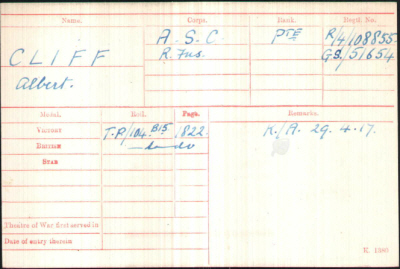 Name. Corps. Rank. Regtl. No.
CLIFF A. S. C. PTE R/4/108855
Albert. R. Fus. GS/51654
Medal. Roll. Page. Remarks.
VICTORY T.P/104.B15 1822 K/A. 29.4.17.
BRITISH —do— do
STAR
Theatre of War first served in
Date of entry therein
K. 1380